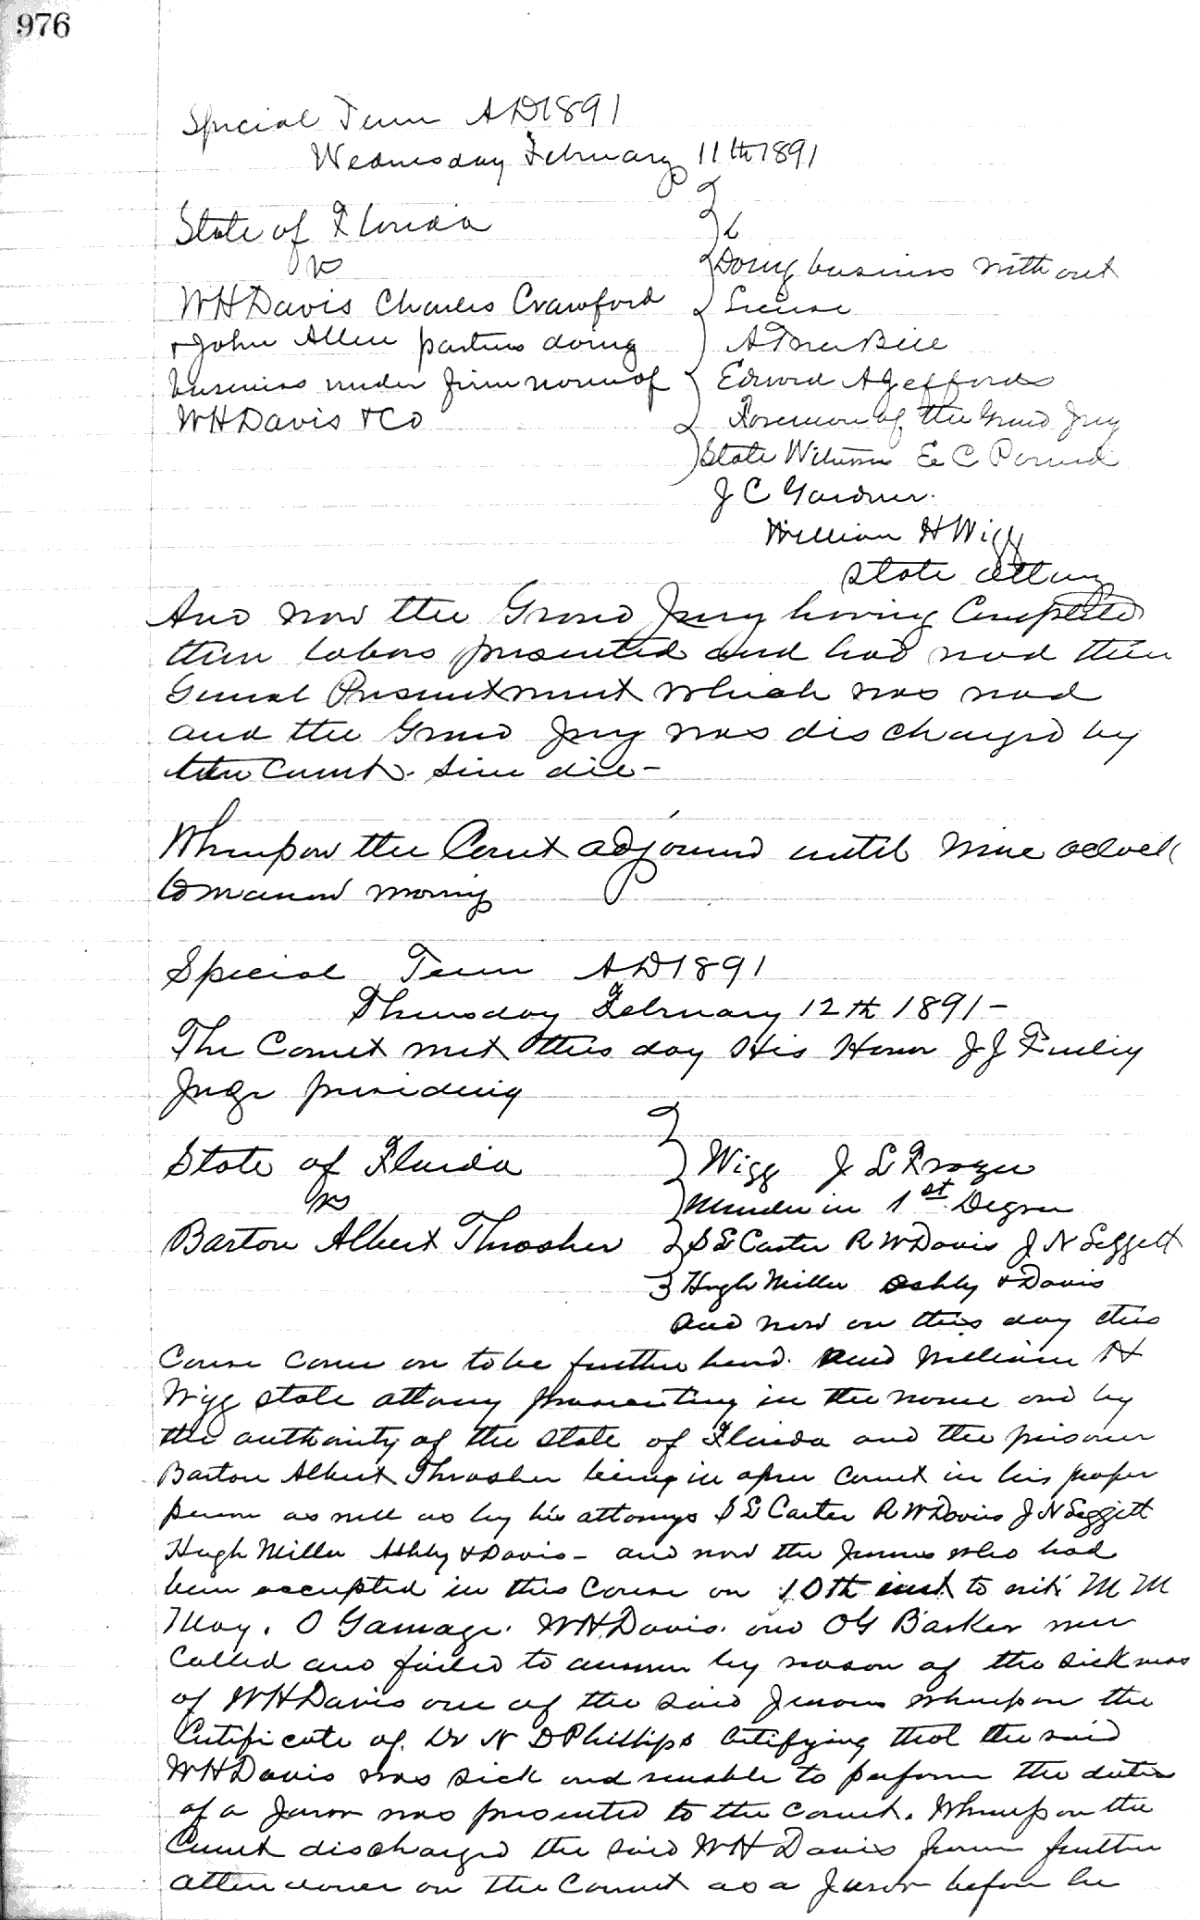 976
Special Term AD1891
Wednesday February 11th 1891
State of Florida
vs
Doing business without
WHDavis Charles Crawford
License
& John Allen partners doing
A True Bill
business under firm name of
Edward A Jeffords
WHDavis & Co
Foreman of the Grand Jury
State Witness E C
J C Gardner.
William H Wigg
State Attny
And now the Grand Jury having Completed
their labors presented and had read their
General Presentment which was read
and the Grand Jury was discharged by
the Court. Sine die-
Whereupon the Court adjourned until nine oclock
tomorrow morning
Special Term AD1891
Thursday February 12th 1891-
The Court met this day His Honor J J Finley
Judge presiding
State of Florida
Wigg J L Frazer
vs
Murder in 1st Degree
Barton Albert Thrasher
S E Carter R W Davis J N Leggett
Hugh Miller Ashby & Davis
And now on this day this
Cause came on to be further heard. And William H
Wigg State attorny prosecuting in the name and by
the authority of the State of Florida and the prisoner
Barton Albert Thrasher being in open Court in his proper
person as well as by his attorneys S E Carter R W Davis J N Leggett
Hugh Miller Ashby & Davis - and now the Jurors who had
been accepted in this Cause on 10th inst to wit M M
May. O Gamage. WH.Davis. and OG Barker were
Called and failed to answer by reason of the sickness
of WHDavis one of the said Jurors whereupon the
Certificate of Dr N D Phillips Certifying that the said
WHDavis was sick and unable to perform the duties
of a Juror was presented to the Court. Whereupon the
Court discharged the said WH Davis from further
attendance on the Court as a Juror before he